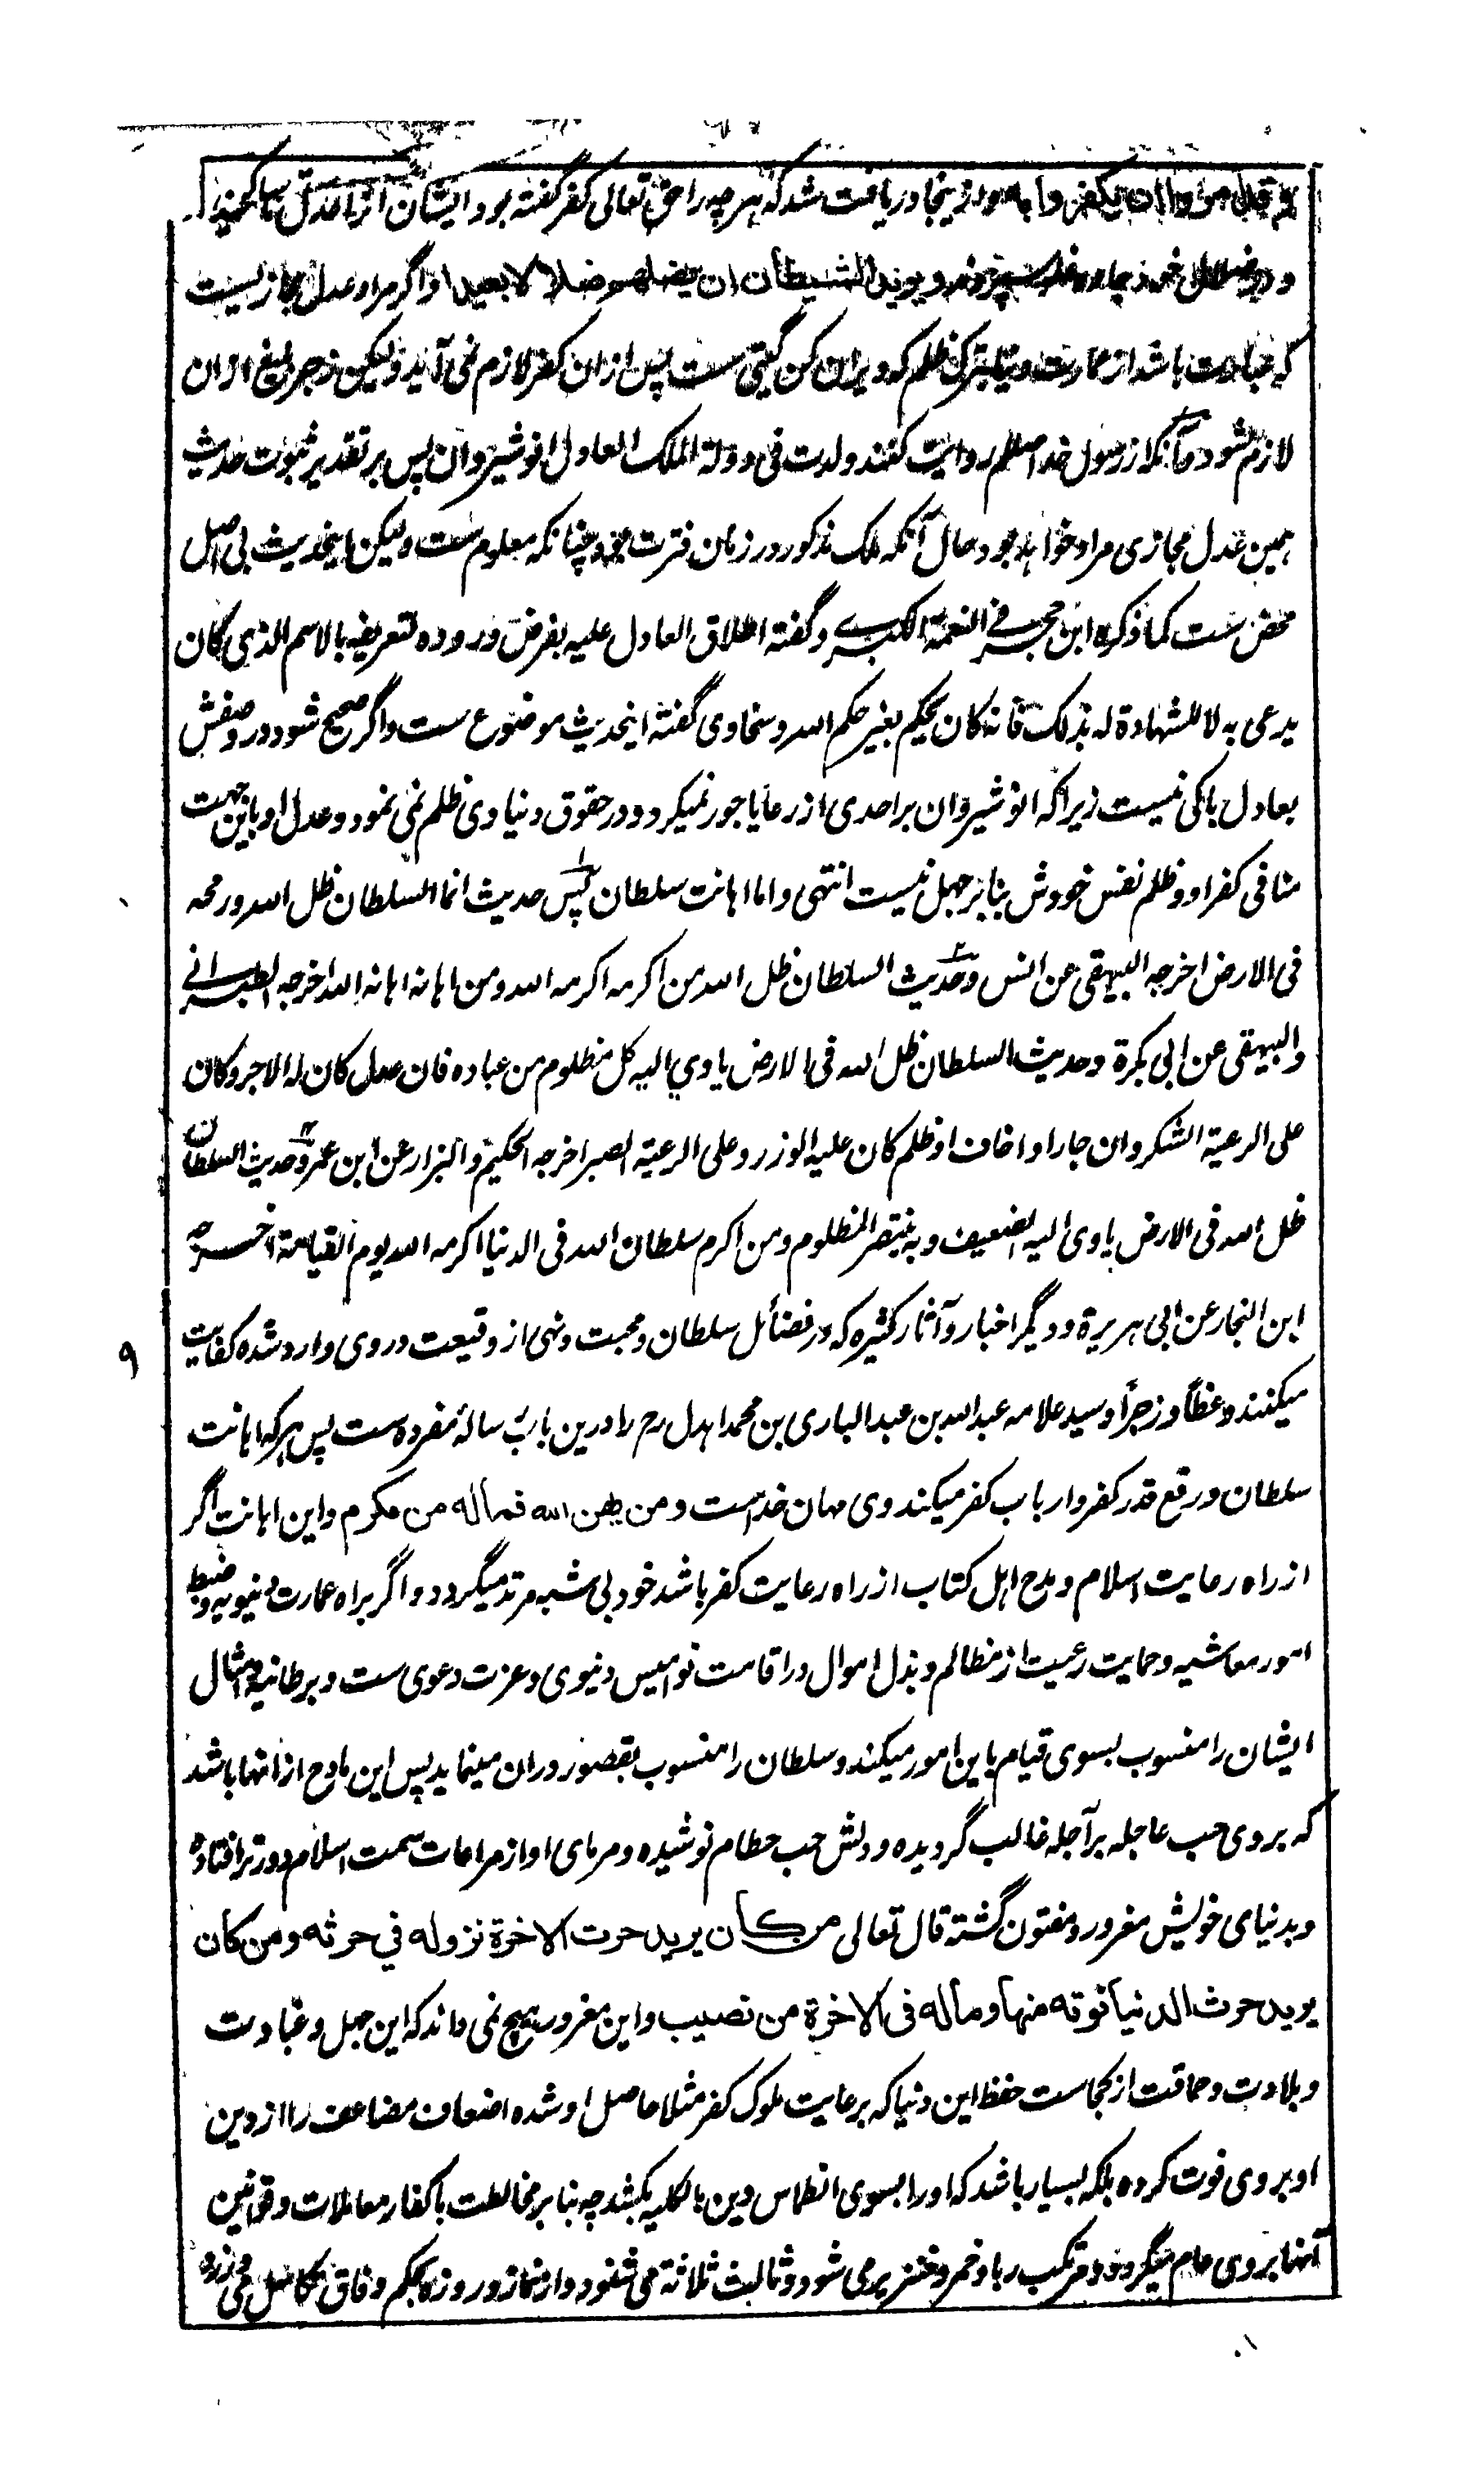 و قد امروا ان یکفروا به و ازینجا دریافت شد که هرچه را حق تعالی کفر گفته بود ایشان آنرا عدل
و یرید الشیطان ان یضلهم ضلالا بعیدا و اگر مراد عدل مجازیست
که عبارت باشد از عمارت دنیا بترک ظلم که ویران کن گیتی ست پس ازان کفر لازم نمی آید ولیکن زجر بلیغ ازان
لازم شود و آنکه از رسول خدا صلعم روایت کنند ولدت فی دولة الملک العادل انوشیروان پس بر تقدیر ثبوت حدیث
همین عدل مجازی مراد خواهد بود حال آنکه ملک مذکور در زمان فترت بود چنانکه معلوم ست ولیکن اینحدیث بی اصل
محض ست کما ذکره ابن حجر فی النعمة الکبری و گفته اطلاق العادل علیه بفرض وروده لتعریفه بالاسم الذی کان
یدعی به لا للشهادة له بذلک فانه کان یحکم بغیر حکم الله و سخاوی گفته اینحدیث موضوع ست و اگر صحیح شود در وصفش
بعادل باکی نیست زیراکه انوشیروان بر احدی از رعایا جور نمیکرد و در حقوق دنیاوی ظلم نمی نمود و عدل او باین جهت
منافی کفر او و ظلم نفس خودش بنابر جهل نیست انتهی و اما اهانت سلطان پس حدیث انما السلطان ظل الله و رمحه
فی الارض اخرجه البیهقی عن انس و حدیث السلطان ظل الله من اکرمه اکرمه الله و من اهانه اهانه الله اخرجه الطبرانی
والبیهقی عن ابی بکرة و حدیث السلطان ظل الله فی الارض یاوی الیه کل مظلوم من عباده فان عدل کان له الاجر و کان
علی الرعیة الشکر و ان جار او اخاف او ظلم کان علیه الوزر و علی الرعیة الصبر اخرجه الحکیم و البزار عن ابن عمر و حدیث السلطان
ظل الله فی الارض یاوی الیه الضعیف و به ینتصر المظلوم و من اکرم سلطان الله فی الدنیا اکرمه الله یوم القیامة اخرجه
ابن النجار عن ابی هریرة و دیگر اخبار و آثار کثیره که در فضائل سلطان و محبت و نهی از وقیعت در وی وارد شده کفایت
میکنند وعظاً و زجراً و سید علامه عبدالله بن عبدالباری بن محمد اهدل رح را درین باب رسالهٔ مفرده ست پس هرکه اهانت
سلطان و رفع قدر کفر و ارباب کفر میکند وی مهان خداست و من یهن الله فماله من مکرم و این اهانت اگر
از راه رعایت اسلام و مدح اهل کتاب از راه رعایت کفر باشد خود بی شبه مرتد میگردد و اگر براه عمارت دنیویه و ضبط
امور معاشیه و حمایت رعیت از مظالم و بذل اموال در اقامت نوامیس دنیوی و عزت دعوی ست و برطانیه و امثال
ایشان را منسوب بسوی قیام باین امور میکند و سلطان را منسوب بقصور دران مینماید پس این مادح ازانها باشد
که بروی حب عاجله بر آجله غالب گردیده و دلش حب حطام نوشیده و مرمای او از مراعات سمت اسلام دورتر افتاده
و بدنیای خویش مغرور و مفتون گشته قال تعالی من کان یرید حرث الاخرة نزد له فی حرثه و من کان
یرید حرث الدنیا نوته منها و ماله فی الاخرة من نصیب و این مغرور هیچ نمی داند که این جهل و غباوت
و بلادت و حماقت از کجاست حفظ این دنیا که برعایت ملوک کفر مثلا حاصل او شده اضعاف مضاعف را از دین
او بروی فوت کرده بلکه بسیار باشد که او را بسوی انطماس دین بالکلیه بکشد چه بنابر مخالطت با کفار معاملات و قوانین
آنها بروی عام میگردد و مرتکب ربا و خمر و خنزیر می شود و ثالث ثلاثه می شنود و از نماز و روزه بحکم وفاق تکاسل می
۹